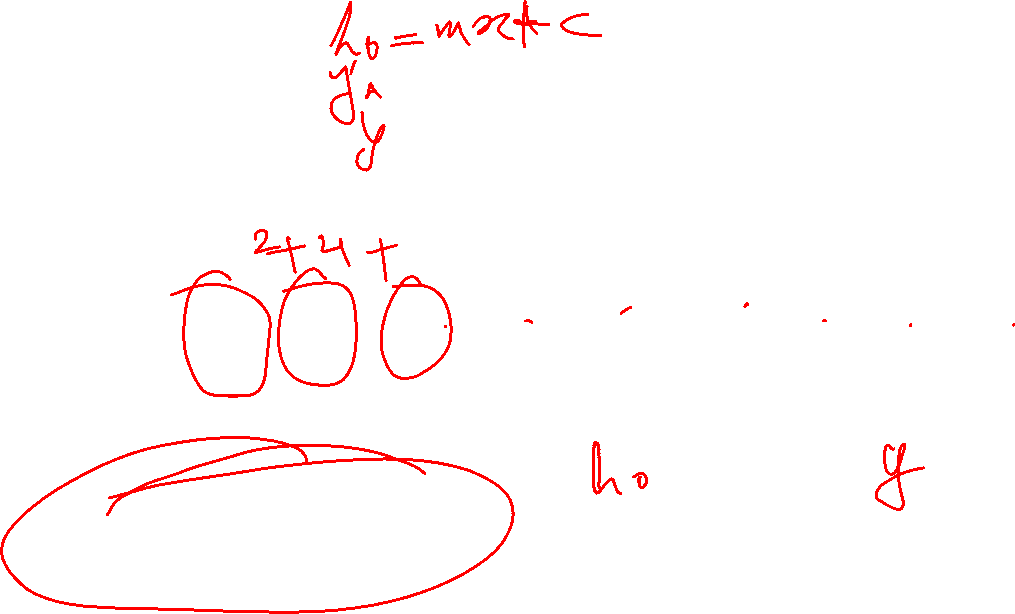 h₀ = mx + c
y'
ŷ
2 + 4 +
h₀ y